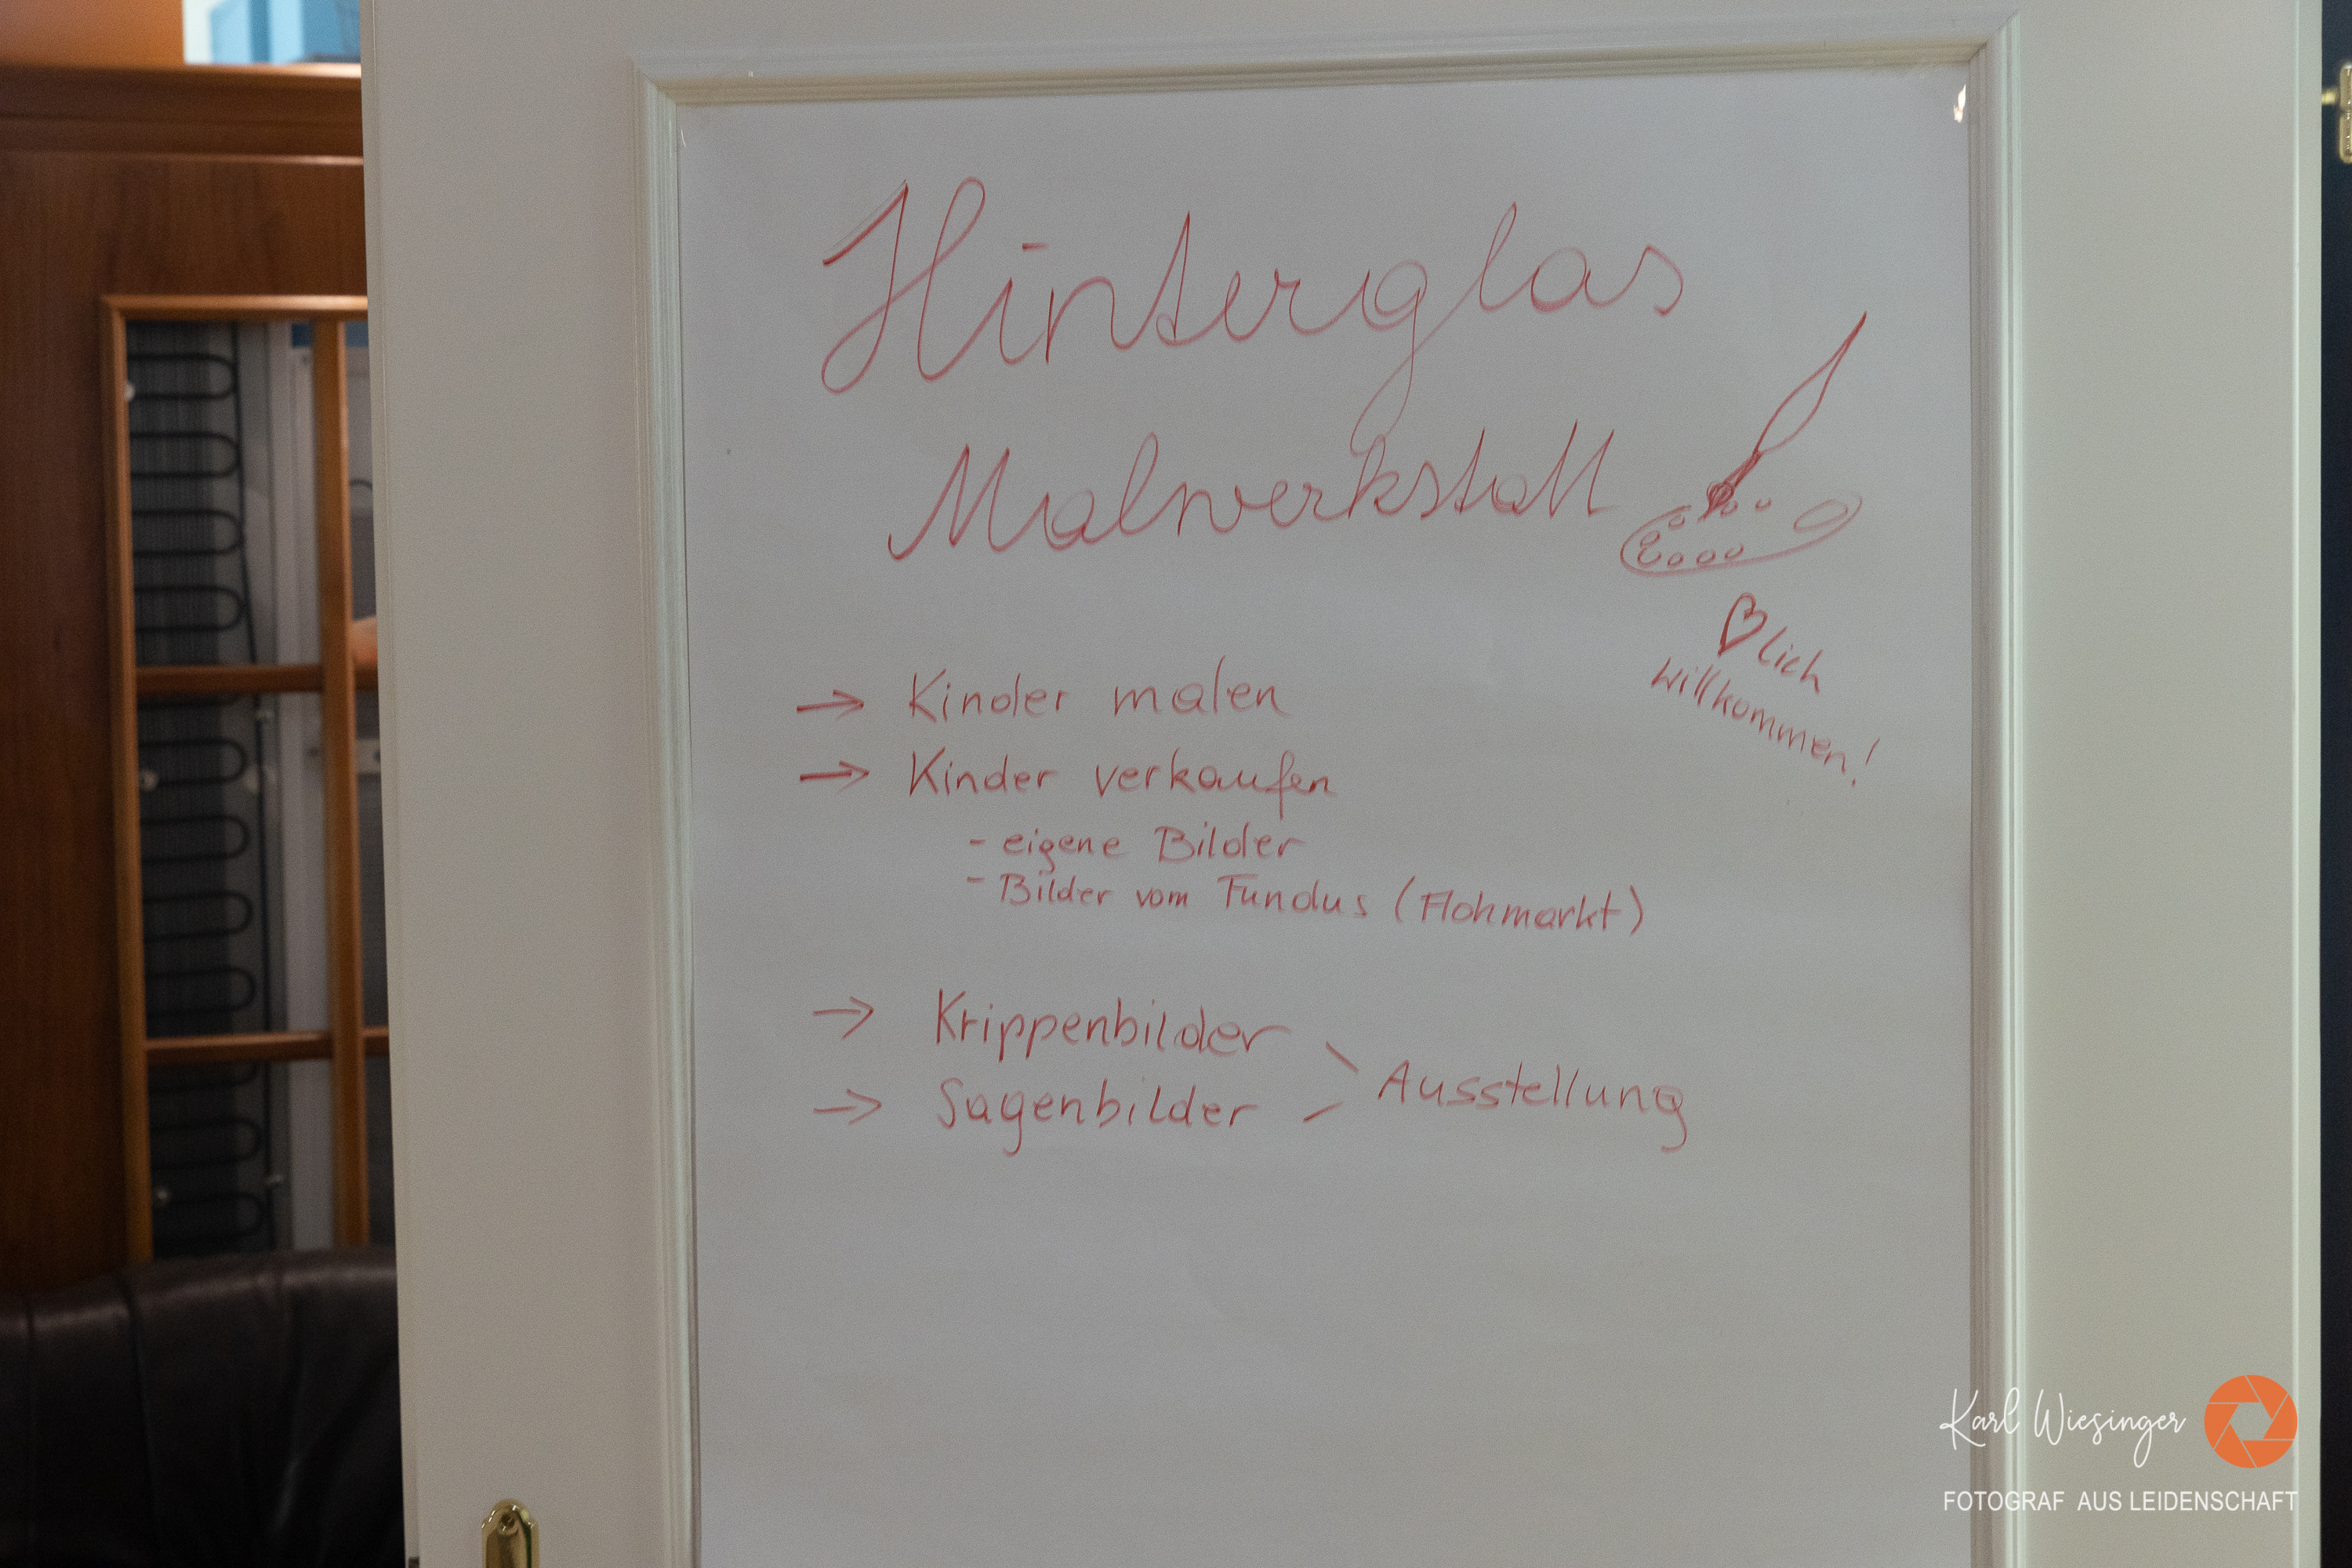 Hinterglas
Malwerkstatt
lich
willkommen!
→ Kinder malen
→ Kinder verkaufen
- eigene Bilder
- Bilder vom Fundus (Flohmarkt)
→ Krippenbilder
→ Sagenbilder
Ausstellung
Karl Wiesinger
FOTOGRAF AUS LEIDENSCHAFT